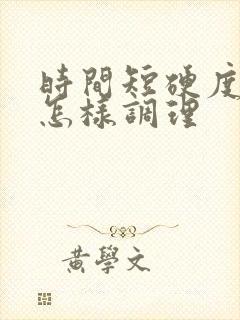 時間短硬度
怎樣調理
黃學文